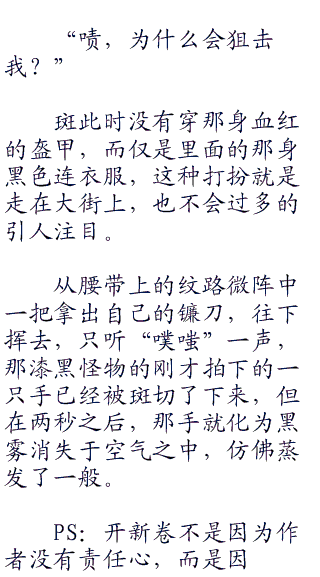 “啧，为什么会狙击
我？”
斑此时没有穿那身血红
的盔甲，而仅是里面的那身
黑色连衣服，这种打扮就是
走在大街上，也不会过多的
引人注目。
从腰带上的纹路微阵中
一把拿出自己的镰刀，往下
挥去，只听“噗嗤”一声，
那漆黑怪物的刚才拍下的一
只手已经被斑切了下来，但
在两秒之后，那手就化为黑
雾消失于空气之中，仿佛蒸
发了一般。
PS：开新卷不是因为作
者没有责任心，而是因